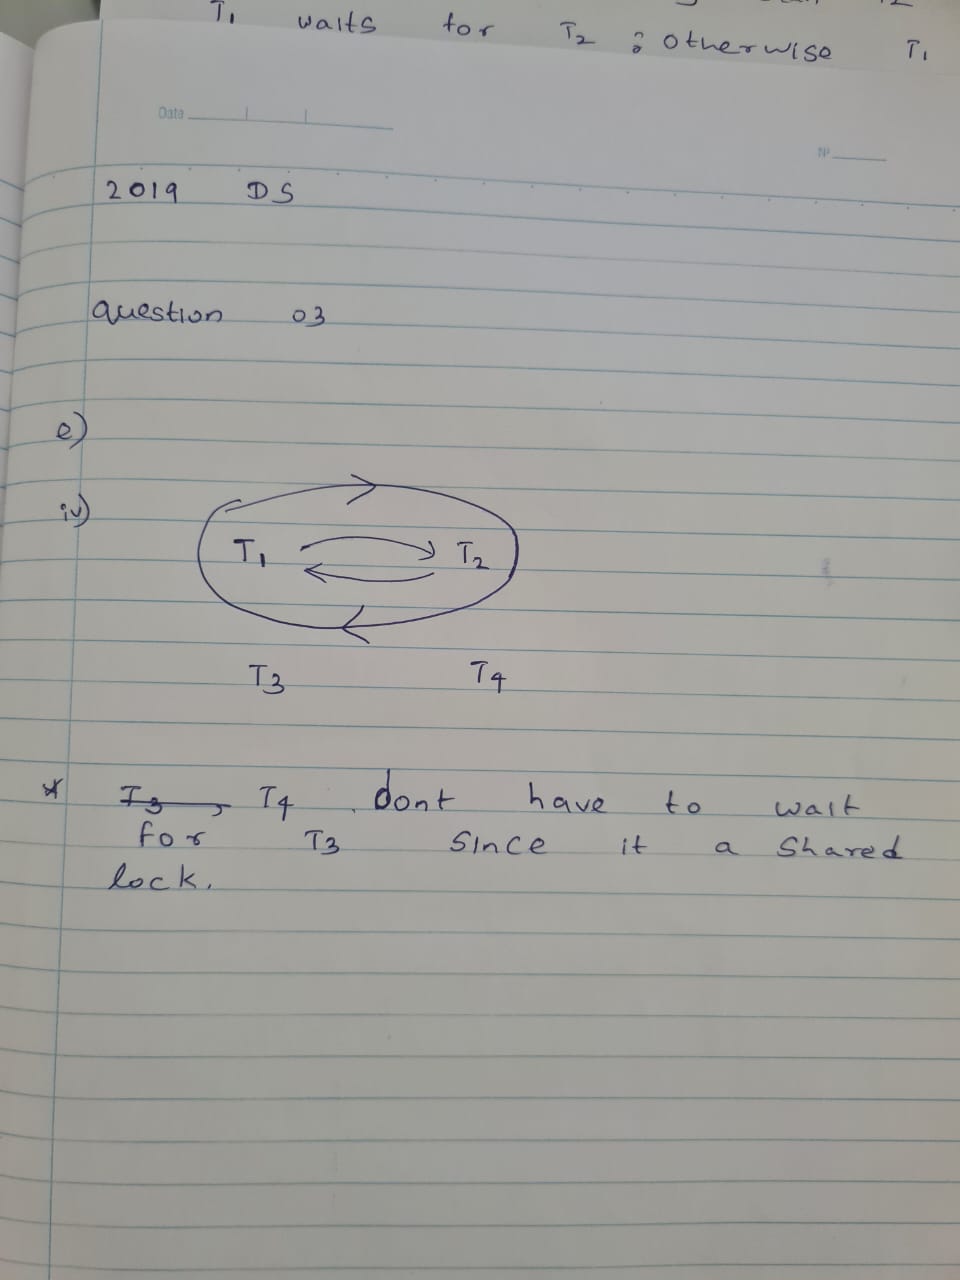 T1 waits for T2 ; otherwise T1
Date
Nº
2019 DS
question 03
e)
iv)
T1 T2
T3 T4
* T4 dont have to wait
for T3 since it a shared
lock.